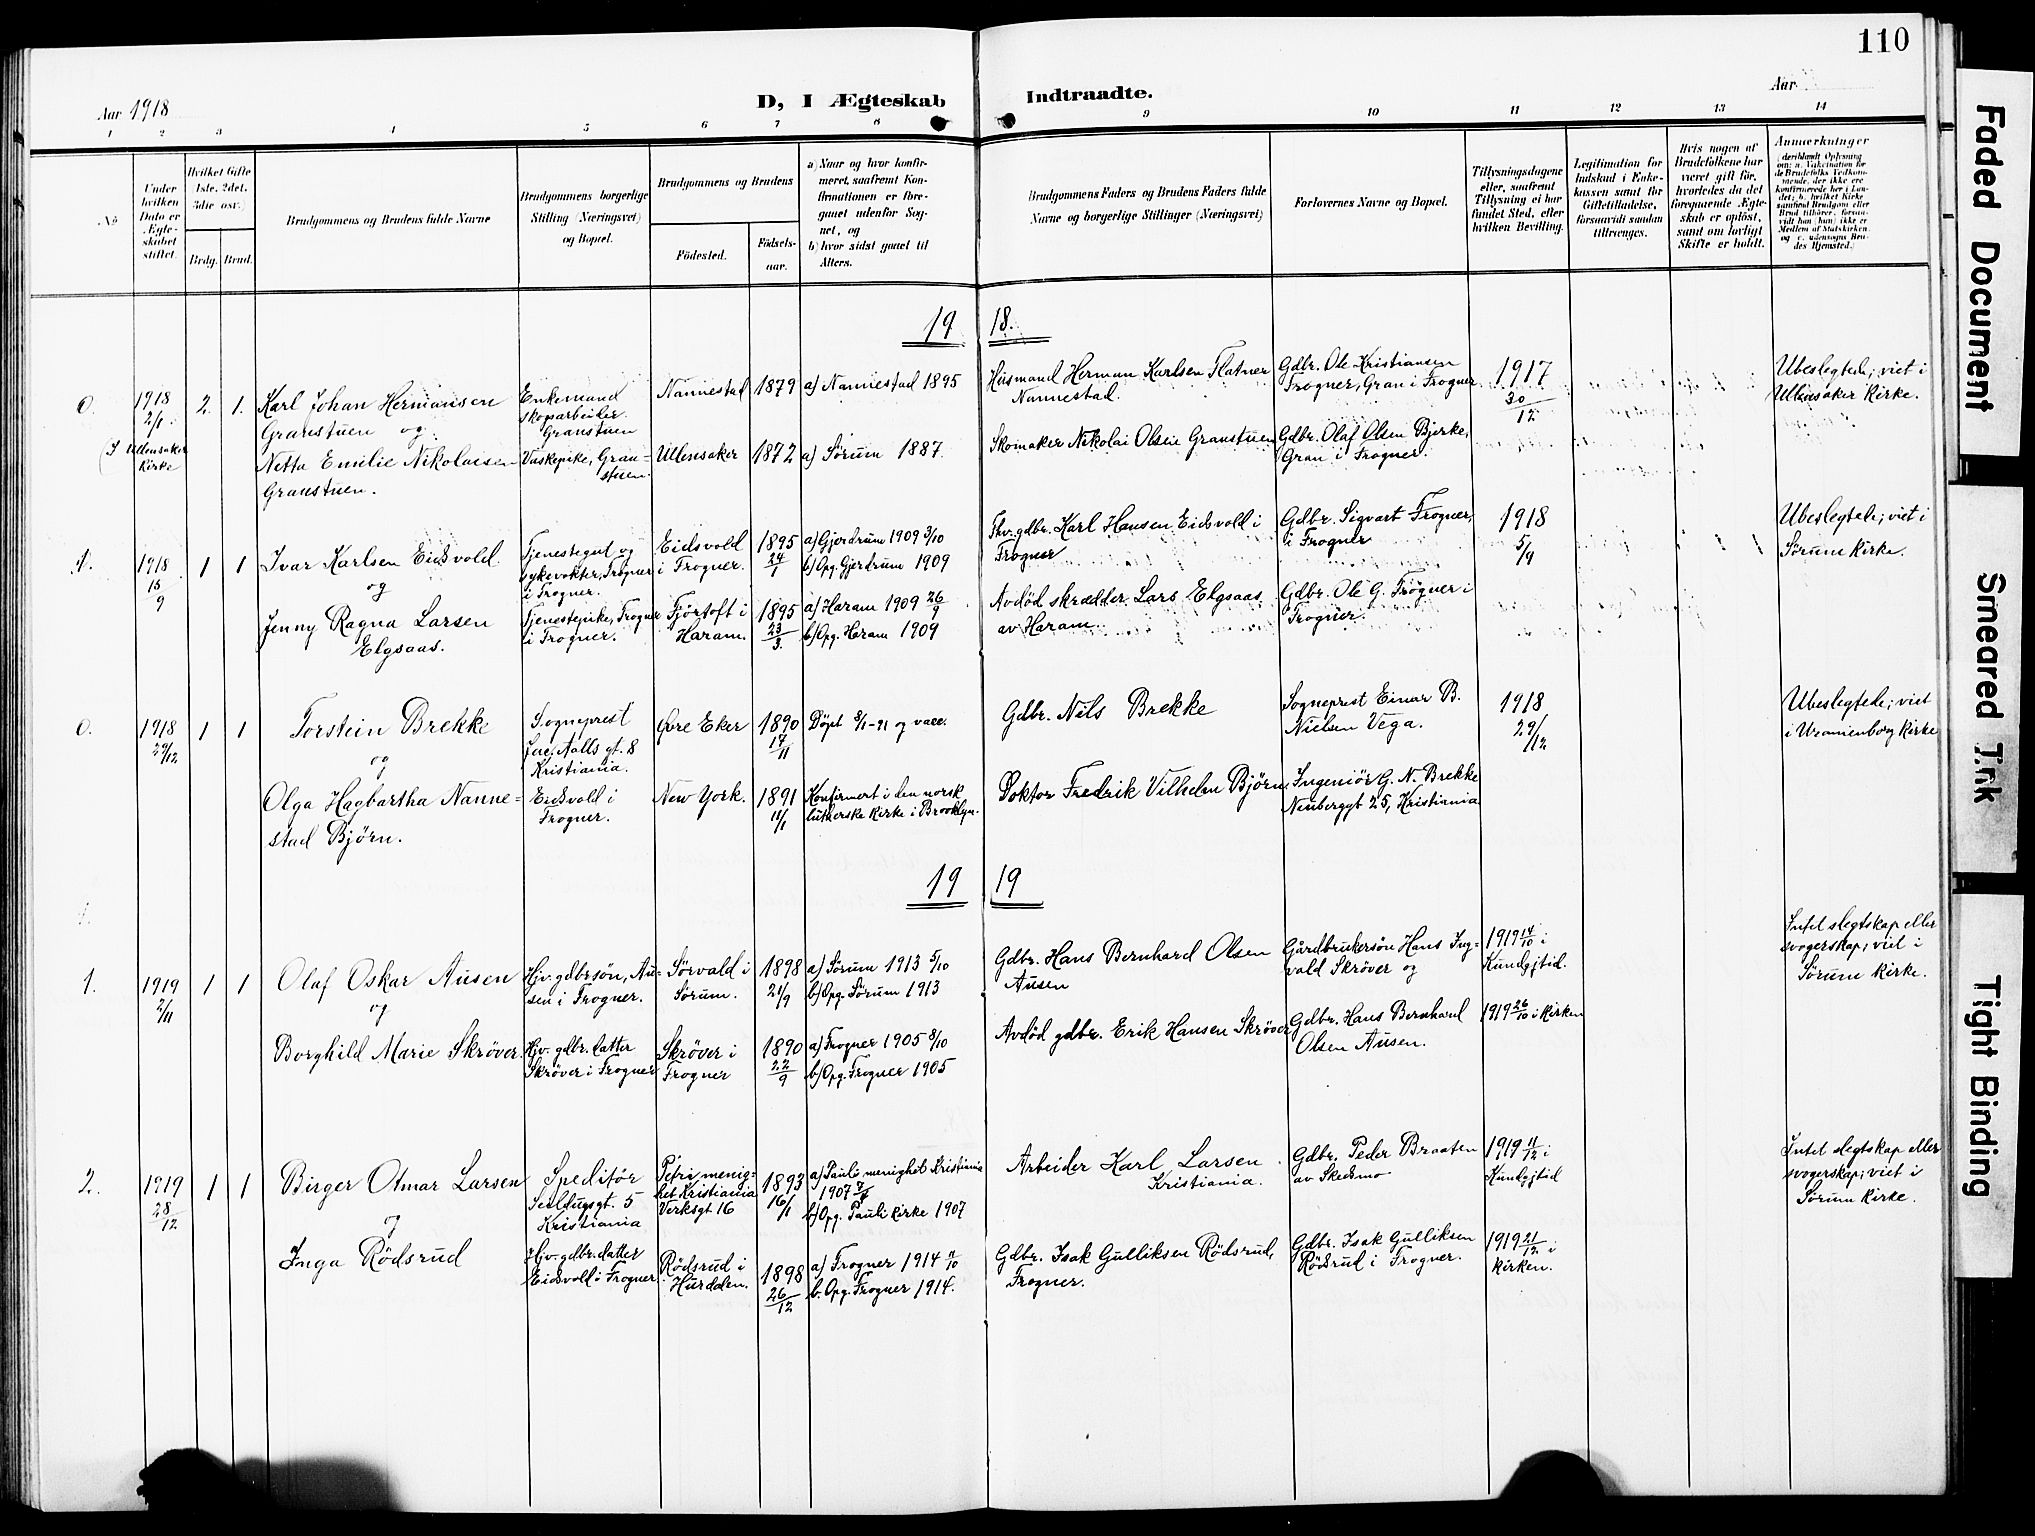 110
Aar 1918
D, I Ægteskab Indtraadte.
Aar
1 2 3 4 5 6 7 8 9 10 11 12 13 14
No
Under hvilken Dato er Ægteskabet stiftet.
Hvilket Gifte 1ste, 2det, 3die osv.)
Brdg. Brud.
Brudgommens og Brudens fulde Navne
Brudgommens borgerlige Stilling (Næringsvei) og Bopæl.
Brudgommens og Brudens
Fødested.
Fødsels-aar.
a) Naar og hvor konfirmeret, saafremt Konfirmationen er foregaaet udenfor Sognet, og
b) hvor sidst gaaet til Alters.
Brudgommens Faders og Brudens Faders fulde Navne og borgerlige Stillinger (Næringsvei)
Forlovernes Navne og Bopæl.
Tillysningsdagene eller, saafremt Tillysning ei har fundet Sted, efter hvilken Bevilling.
Legitimation for Indskud i Enkekassen samt for Giftetilladelse, forsaavidt saadan tiltrænges.
Hvis nogen af Brudefolkene har været gift før, hvorledes da det foregaaende Ægteskab er opløst, samt om lovligt Skifte er holdt.
Anmærkninger
19 18.
0.
1918
2/1.
(I Ullensaker
Kirke
2. 1.
Karl Johan Hermansen
Granstuen og
Netta Emilie Nikolaisen
Granstuen.
Enkemand
skoparbeider
Granstuen
Vaskepike, Gran-
stuen.
Nannestad
Ullensaker
1879
1872
a) Nannestad 1895
a) Sørum 1887.
Husmand Herman Karlsen Flatner
Nannestad.
Skomaker Nikolai Olsen Granstuen
Gdbr. Ole Kristiansen
Frogner, Gran i Frogner
Gdbr. Olaf Olsen Bjerke,
Gran i Frogner.
1917
30
12
Ubeslegtede; viet i
Ullensaker Kirke.
1.
1918
15
9
1 1
Ivar Karlsen Eidsvold
og
Jenny Ragna Larsen
Elgsaas.
Tjenestegut og
sykevokter, Frogner
i Frogner.
Tjenestepike, Frogner
i Frogner.
Eidsvold
i Frogner.
Fjörtoft i
Haram.
1895
24
1
1895
23
3.
a) Gjerdrum 1909 3/10
b) Opg. Gjerdrum 1909
a) Haram 1909 26/9
b) Opg. Haram 1909
Fhv. gdbr. Karl Hansen Eidsvold i
Frogner
Avdød skrædder Lars Elgsaas
av Haram.
Gdbr. Sigvart Frogner,
i Frogner
Gdbr. Ole G. Frogner i
Frogner.
1918
5/9
Ubeslegtede; viet i
Sørum Kirke.
0.
1918
29/12
1 1
Torstein Brekke
og
Olga Hagbartha Nanne-
stad Björn.
Sogneprest
Jac. Aalls gt. 8
Kristiania.
Eidsvold i
Frogner.
Øvre Eker
New York.
1890
17
11
1891
11/1
Döpt 8/1-91 og vacc.
Konfirmert i den norsk
lutherske kirke i Brooklyn.
Gdbr. Nils Brekke
Doktor Fredrik Vilhelm Björn
Sogneprest Einar B.
Nielsen Vega.
Ingeniör G. N. Brekke
Neuberggt 25, Kristiania
1918
29/12
Ubeslegtede; viet
i Uranienborg Kirke
19 19
1.
1919
2/11
1 1
Olaf Oskar Ausen
og
Borghild Marie Skröver
Hjv. gdbrsön, Au-
sen i Frogner.
Hjv. gdbr. datter
Skröver i Frogner
Sörvald i
Sörum.
Skröver i
Frogner
1898
21/9
1890
22
9
a) Sørum 1913 5/10
b) Opg. Sørum 1913
a) Frogner 1905 8/10
b) Opg. Frogner 1905
Gdbr. Hans Bernhard Olsen
Ausen
Avdød gdbr. Erik Hansen Skröver
Gårdbrukersön Hans Ing-
vald Skröver og
Gdbr. Hans Bernhard
Olsen Ausen.
1919 14/10 i
Kundgjtid.
1919 26/10 i Kirken
Intet slegtskap eller
svogerskap; viet i
Sørum Kirke.
2.
1919
28
12
1 1
Birger Otmar Larsen
og
Inga Rödsrud
Speditör
Seildugsgt. 5
Kristiania
Hjv. gdbr. datter
Eidsvold i Frogner
Petri menig-
het Kristiania
Verksgt 16
Rödsrud i
Hurdalen.
1893
16/1
1898
26
12
a) Pauli menighet Kristiania
1907
b) Opg. Pauli kirke 1907
a) Frogner 1914 11/10
b. Opg. Frogner 1914.
Arbeider Karl Larsen
Kristiania.
Gdbr. Isak Gulliksen Rödsrud,
Frogner.
Gdbr. Peder Braaten
av Skedsmo
Gdbr. Isak Gulliksen
Rödsrud i Frogner.
1919 11/12 i
Kundgjtid
1919 21/12 i
Kirken.
Intet slegtskap eller
svogerskap; viet i
Sørum Kirke.
Faded Document
Smeared Ink
Tight Binding